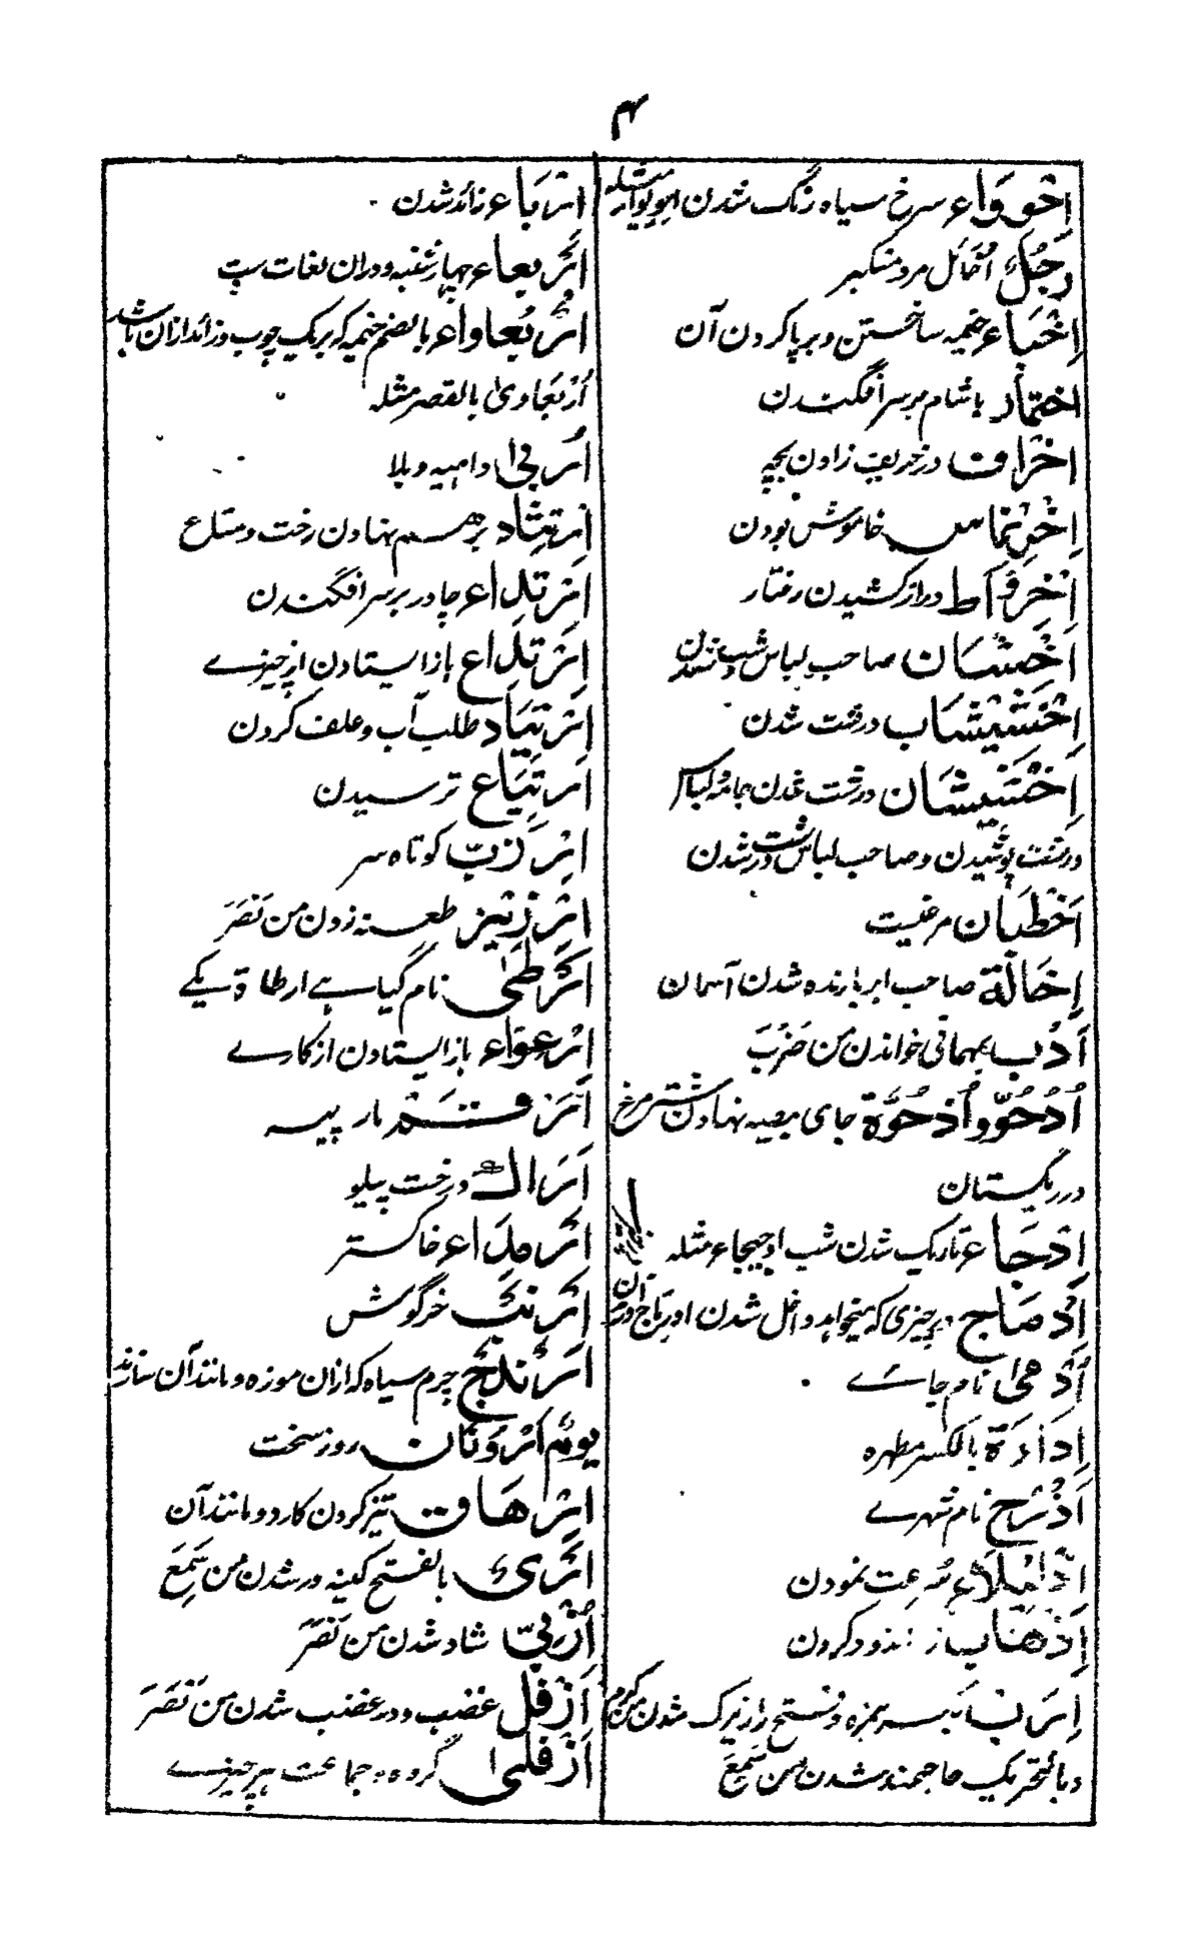 ۴
اِحْوِوَاء سرخ سیاه رنگ شدن احویواء مثله
رَجُلٌ اُخَائل مرد متکبر
اِخْبَاء خیمه ساختن و برپا کردن آن
اختمار باشام بر سر افگندن
اِخْرَاف در خریف زادن بچه
اِخْرِنْمَاس خاموش بودن
اِخْرِوَّاط دراز کشیدن رفتار
اِخْشَان صاحب لباس درشت شدن
اِخْشِیْشَاب درشت شدن
اِخْشِیْشَان درشت شدن جامه و لباس
درشت پوشیدن و صاحب لباس درشت شدن
اَخْطَبَان مرغیست
اِخَالَة صاحب ابر بارنده شدن آسمان
اَدْب بمهمانی خواندن من ضَرَبَ
اُدْحُوّ و اُدْحُوَّة جای بیضه نهادن شتر مرغ
در ریگستان
اِدْجَاء تاریک شدن شب ادجیجاء مثله
اِدِّمَاج بر چیزی که میخواهد داخل شدن
اُدَمٰی نام جائے
اِدَاوَة بالکسر مطهره
اَذْرُح نام شهرے
اِذْلِیْلَاء سرعت نمودن
اِذْهَاب زراندود کردن
اِرَب بکسر همزه و فتح را زیرک شدن من کرم
و بالتحریک حاجتمند شدن من سَمِعَ
اِرْبَاء زائد شدن
اَرْبِعَاء چهارشنبه و دران لغات ست
اُرْبُعَاوَاء بالضم خیمه که بر یک چوب و زائد ازان باشد
اُرْبُعَاوٰی بالقصر مثله
اُرَبٰی داهیه و بلا
اِرْتِثَاد برهم نهادن رخت و متاع
اِرْتِدَاء چادر بر سر افگندن
اِرْتِدَاع باز ایستادن از چیزے
اِرْتِیَاد طلب آب و علف کردن
اِرْتِیَاع ترسیدن
اِرْزَبّ کوتاه سر
اِرْزِیْز طعنه زدن من نَصَرَ
اَرْطٰی نام گیاهے ارطاة یکے
اِرْعِوَاء باز ایستادن از کارے
اَرْقَم مار پیسه
اَرَاك درخت پیلو
اَرْمِدَاء خاکستر
اَرْنَب خرگوش
اَرَنْدَج چرم سیاه که ازان موزه و مانند آن سازند
یَوْمٌ اَرْوَنَان روز سخت
اِرْهَاف تیز کردن کارد و مانند آن
اَرْیٌ بالفتح کینه ور شدن من سَمِعَ
اُزْبِیّ شاد شدن من نَصَرَ
اَزْفَل غضب و در غضب شدن من نَصَرَ
اَزْفَلٰی گروه و جماعت هر چیزے